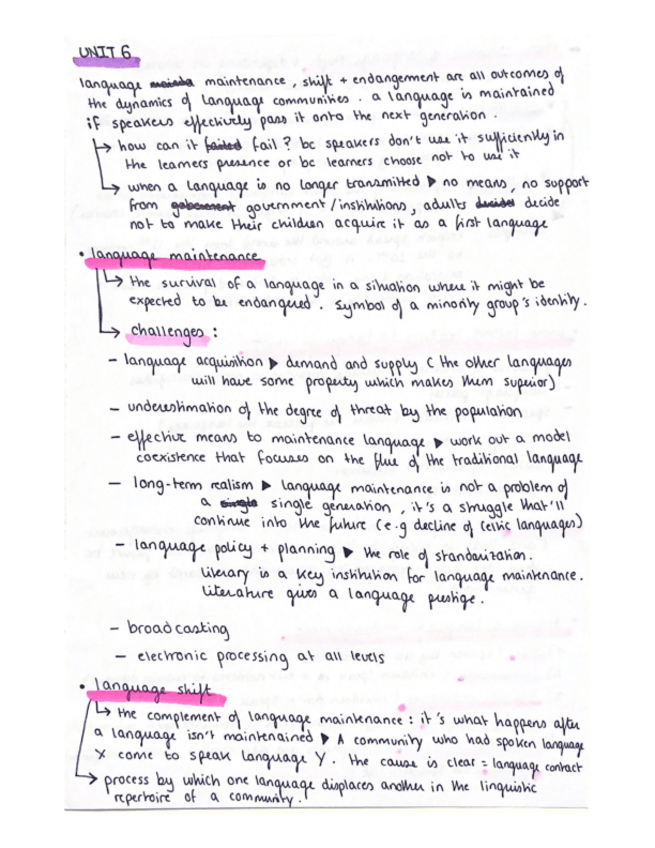 UNIT 6
language maintenance, shift + endangement are all outcomes of
the dynamics of language communities. a language is maintained
if speakers effectively pass it onto the next generation.
↳ how can it failed fail? bc speakers don't use it sufficiently in
the learners presence or bc learners choose not to use it
↳ when a language is no longer transmitted ▶ no means, no support
from goberment government/institutions, adults decide
not to make their children acquire it as a first language
• language maintenance
↳ the survival of a language in a situation where it might be
expected to be endangered. Symbol of a minority group's identity.
↳ challenges:
- language acquisition ▶ demand and supply (the other languages
will have some property which makes them superior)
- underestimation of the degree of threat by the population
- effective means to maintenance language ▶ work out a model
coexistence that focuses on the flue of the traditional language
- long-term realism ▶ language maintenance is not a problem of
a single single generation, it's a struggle that'll
continue into the future (e.g decline of celtic languages)
- language policy + planning ▶ the role of standarization.
literary is a key institution for language maintenance.
literature gives a language prestige.
- broadcasting
- electronic processing at all levels
• language shift
↳ the complement of language maintenance: it's what happens after
a language isn't maintenained ▶ A community who had spoken language
X come to speak language Y. The cause is clear = language contact
↳ process by which one language displaces another in the linguistic
repertoire of a community.